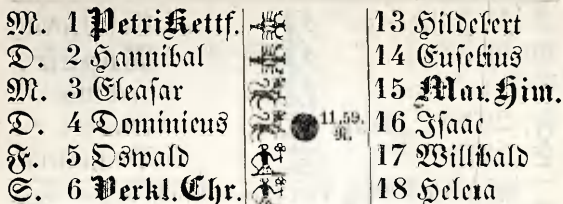 M. 1 Petri Kettf. 13 Hildebert
D. 2 Hannibal 14 Eusebius
M. 3 Eleasar 15 Mar. Him.
D. 4 Dominicus 11,59. N. 16 Isaac
F. 5 Oswald 17 Willibald
S. 6 Verkl. Chr. 18 Helena